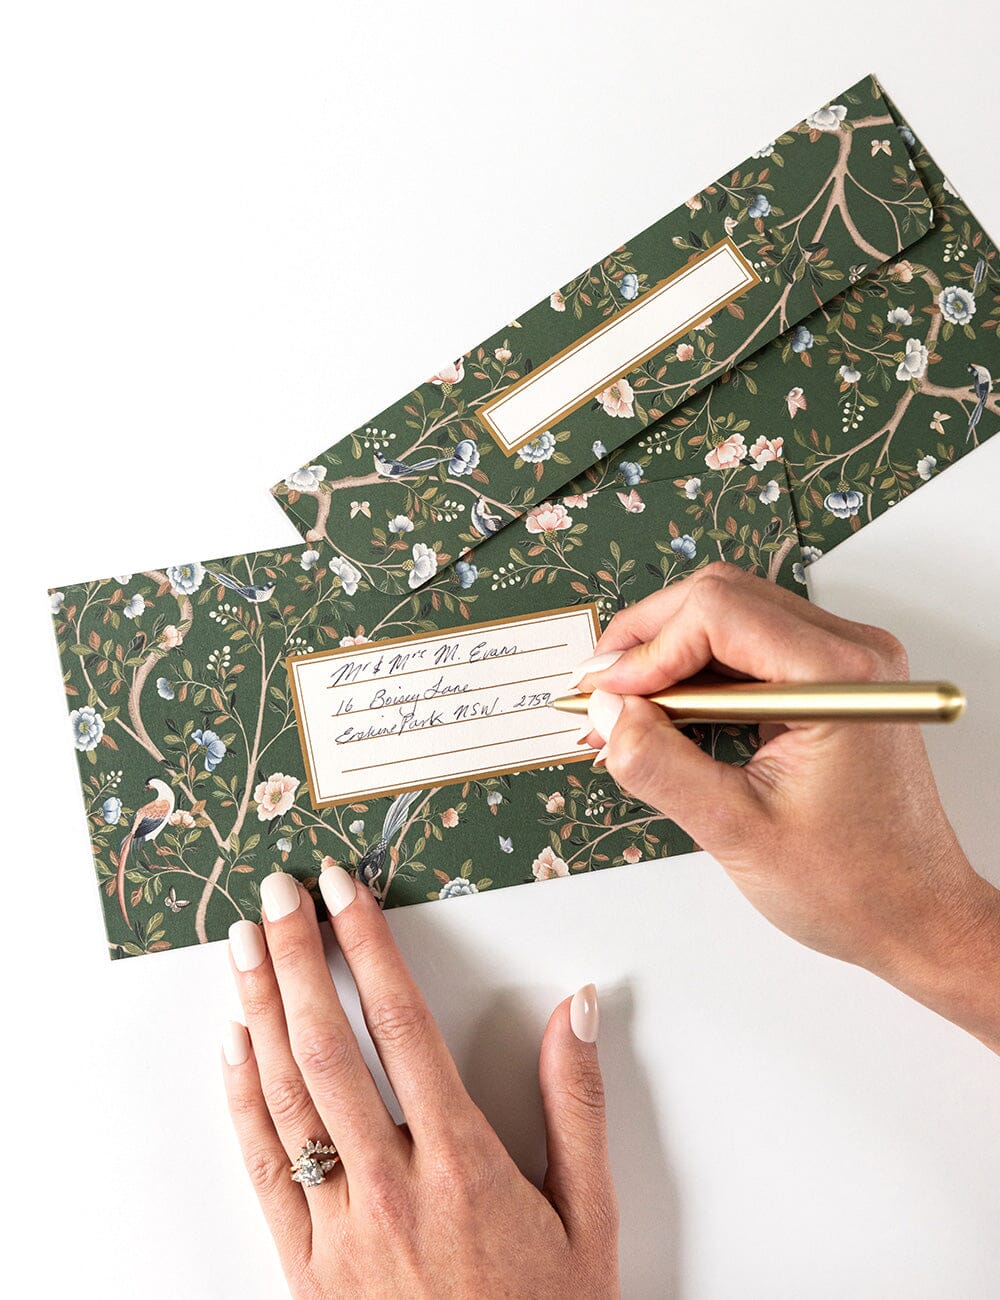 Mr & Mrs M. Evans.
16 Boisey Lane
Erskine Park NSW. 2759